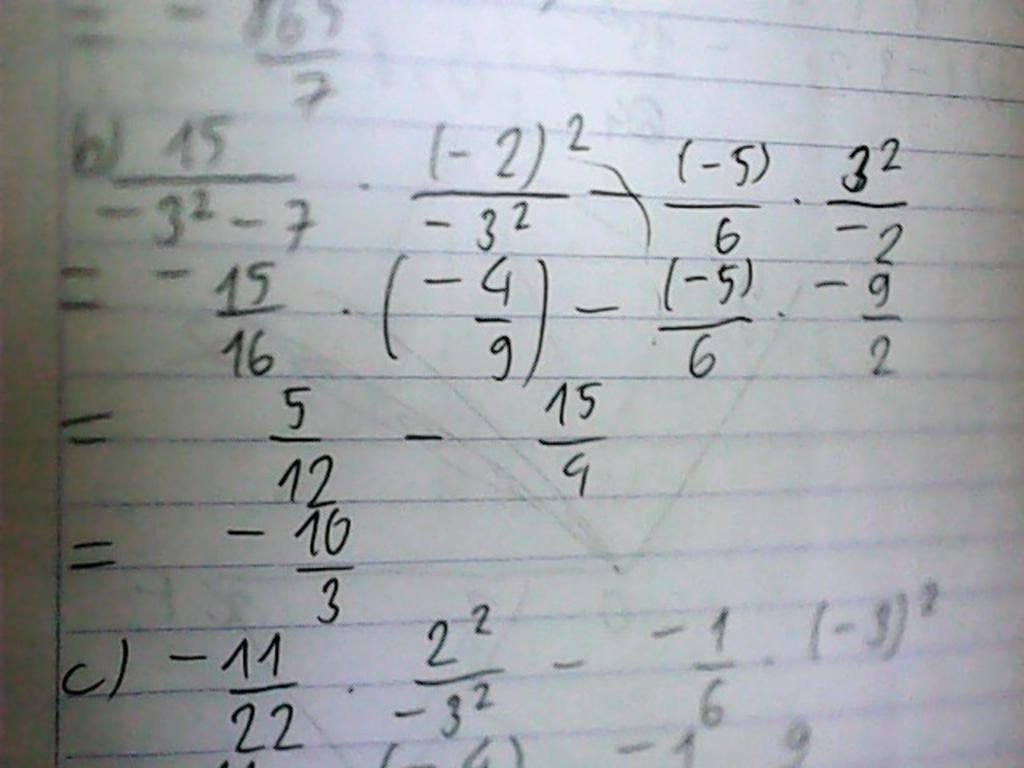 = - 865/7
b) 15/(-3² - 7) · (-2)²/(-3²) - (-5)/6 · 3²/(-2)
= - 15/16 · (- 4/9) - (-5)/6 · - 9/2
= 5/12 - 15/4
= - 10/3
c) - 11/22 · 2²/(-3²) - - 1/6 · (-3)²